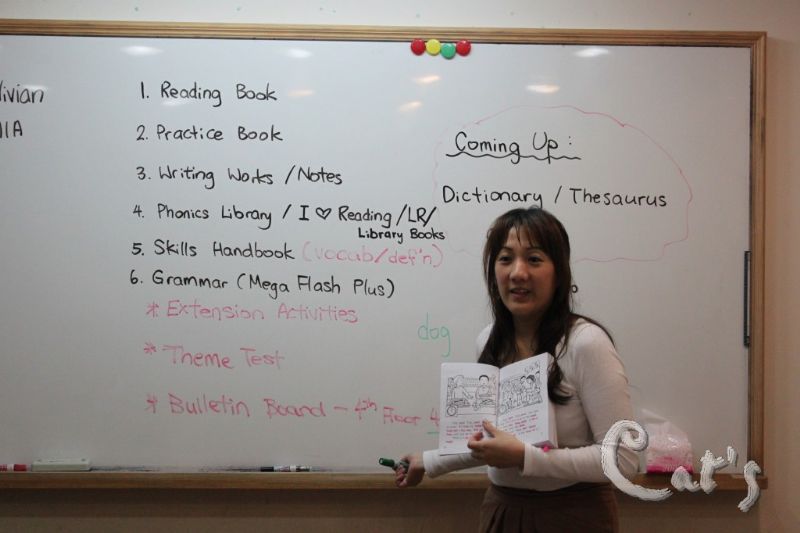 ivian
IIA
1. Reading Book
2. Practice Book
3. Writing Works / Notes
4. Phonics Library / I ♡ Reading / LR /
Library Books
5. Skills Handbook (vocab/def'n)
6. Grammar (Mega Flash Plus)
* Extension Activities
* Theme Test
* Bulletin Board - 4th Floor 4
Coming Up :
Dictionary / Thesaurus
dog
Cat's